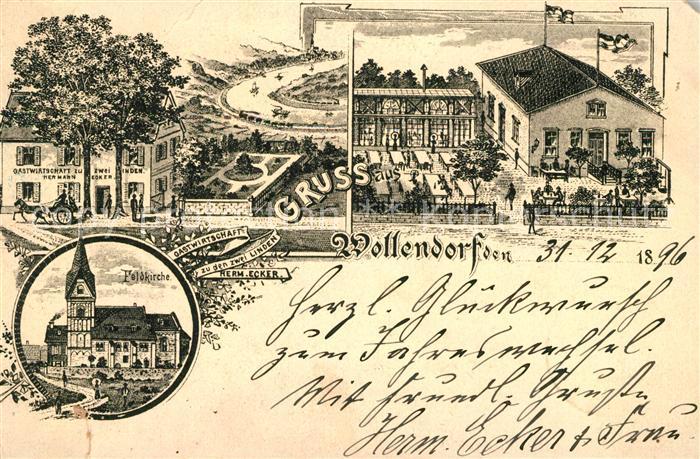 GASTWIRTSCHAFT ZU ZWEI LINDEN.
HERMANN ECKER
GRUSS aus
Wollendorf, den 31. 12 1896
GASTWIRTSCHAFT
ZU DEN ZWEI LINDEN
HERM. ECKER
Feldkirche.
Herzl. Glückwunsch
zum Jahreswechsel.
Mit freundl. Gruß
Herm. Ecker & Frau